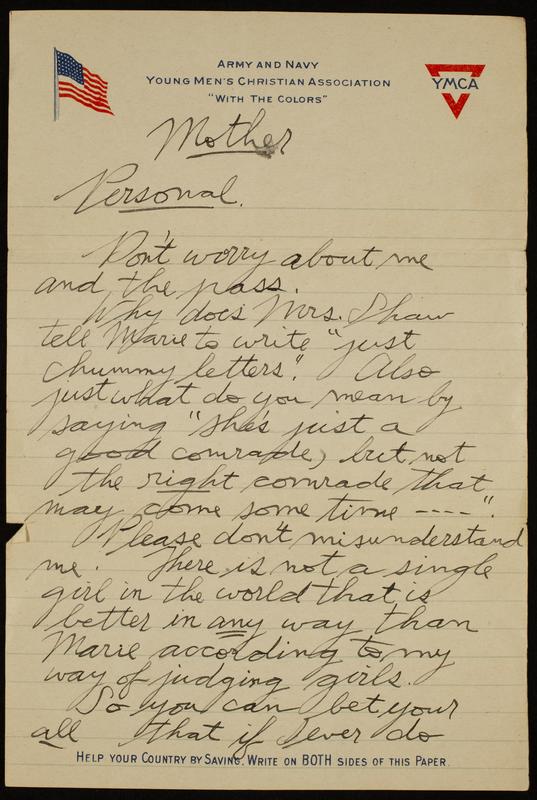 ARMY AND NAVY
YOUNG MEN'S CHRISTIAN ASSOCIATION
"WITH THE COLORS"
YMCA
Mother
Personal.
Don't worry about me
and the pass.
Why does Mrs. Shaw
tell Marie to write "just
chummy letters". Also
just what do you mean by
saying "she's just a
good comrade, but not
the right comrade that
may come some time ----".
Please don't misunderstand
me. There is not a single
girl in the world that is
better in any way than
Marie according to my
way of judging girls.
So you can bet your
all that if I ever do
HELP YOUR COUNTRY BY SAVING. WRITE ON BOTH SIDES OF THIS PAPER.